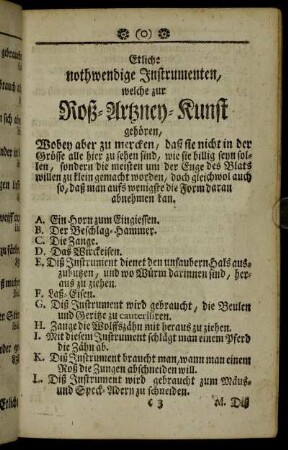 (o)
Etliche
nothwendige Instrumenten,
welche zur
Roß-Artzney-Kunst
gehören,
Wobey aber zu mercken, daß sie nicht in der
Grösse alle hier zu sehen sind, wie sie billig seyn sol-
len, sondern die meisten um der Enge des Blats
willen zu klein gemacht worden, doch gleichwol auch
so, daß man aufs wenigste die Form daran
abnehmen kan.
A. Ein Horn zum Eingiessen.
B. Der Beschlag-Hammer.
C. Die Zange.
D. Das Wirckeisen.
E. Diß Instrument dienet den unsaubern Hals aus-
zubutzen, und wo Würm darinnen sind, her-
aus zu ziehen.
F. Laß-Eisen.
G. Diß Instrument wird gebraucht, die Beulen
und Geritze zu cauterisiren.
H. Zange die Wolffszähn mit heraus zu ziehen.
I. Mit diesem Instrument schlägt man einem Pferd
die Zähn ab.
K. Diß Instrument braucht man, wann man einem
Roß die Zungen abschneiden will.
L. Diß Instrument wird gebraucht zum Mäus-
und Speck-Adern zu schneiden.
c 3 M. Diß